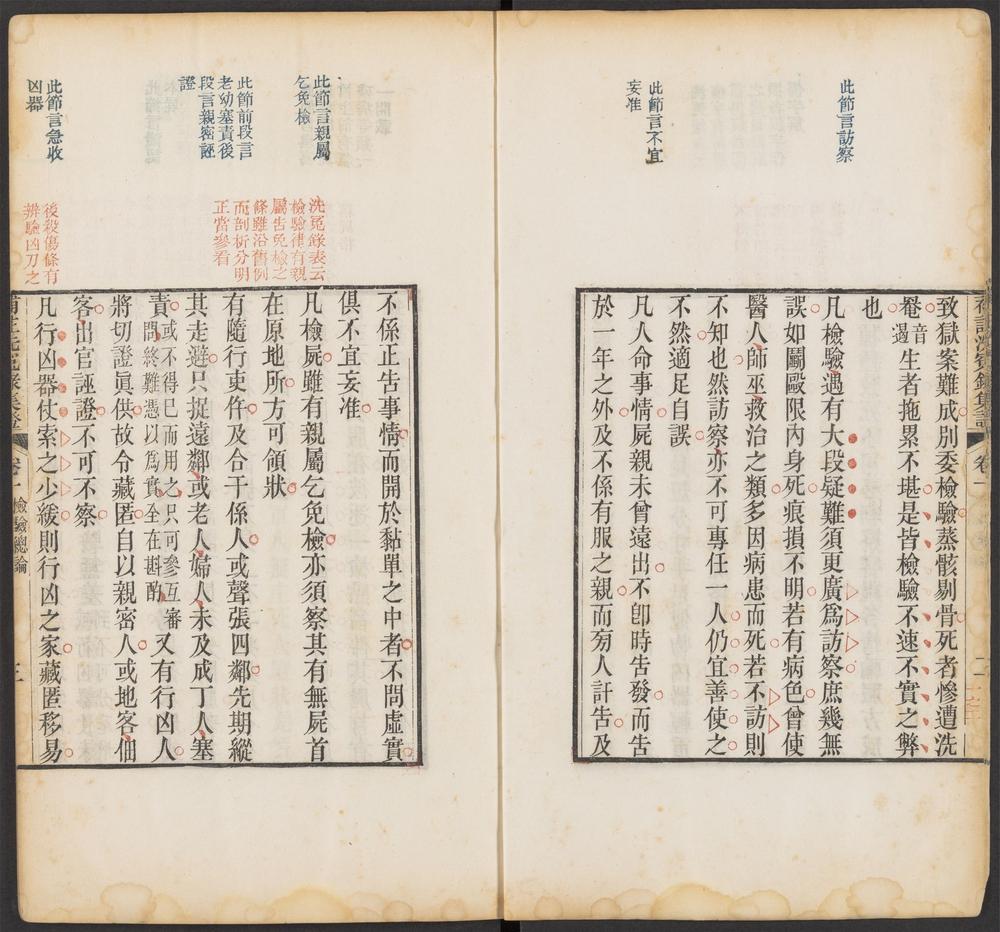 此節言訪察
此節言不宜
妄准
卷一
二
致獄案難成別委檢驗蒸骸剔骨死者慘遭洗
罨音遏生者拖累不堪是皆檢驗不速不實之弊
也
凡檢驗遇有大段疑難須更廣爲訪察庶幾無
誤如鬭毆限內身死痕損不明若有病色曾使
醫人師巫救治之類多因病患而死若不訪則
不知也然訪察亦不可專任一人仍宜善使之
不然適足自誤
凡人命事情屍親未曾遠出不卽時告發而告
於一年之外及不係有服之親而旁人訐告及
此節言親屬
乞免檢
此節前段言
老幼塞責後
段言親密誣
證
此節言急收
凶器
洗冤錄表云
檢驗律有親
屬告免檢之
條雖沿舊例
而剖析分明
正當參看
後殺傷條有
辨驗凶刀之
不係正告事情而開於黏單之中者不問虛實
俱不宜妄准
凡檢屍雖有親屬乞免檢亦須察其有無屍首
在原地所方可領狀
有隨行吏仵及合干係人或聲張四鄰先期縱
其走避只捉遠鄰或老人婦人未及成丁人塞
責或不得已而用之只可參互審問終難憑以爲實全在斟酌又有行凶人
將切證眞供故令藏匿自以親密人或地客佃
客出官誣證不可不察
凡行凶器仗索之少緩則行凶之家藏匿移易
卷一 檢驗總論
三